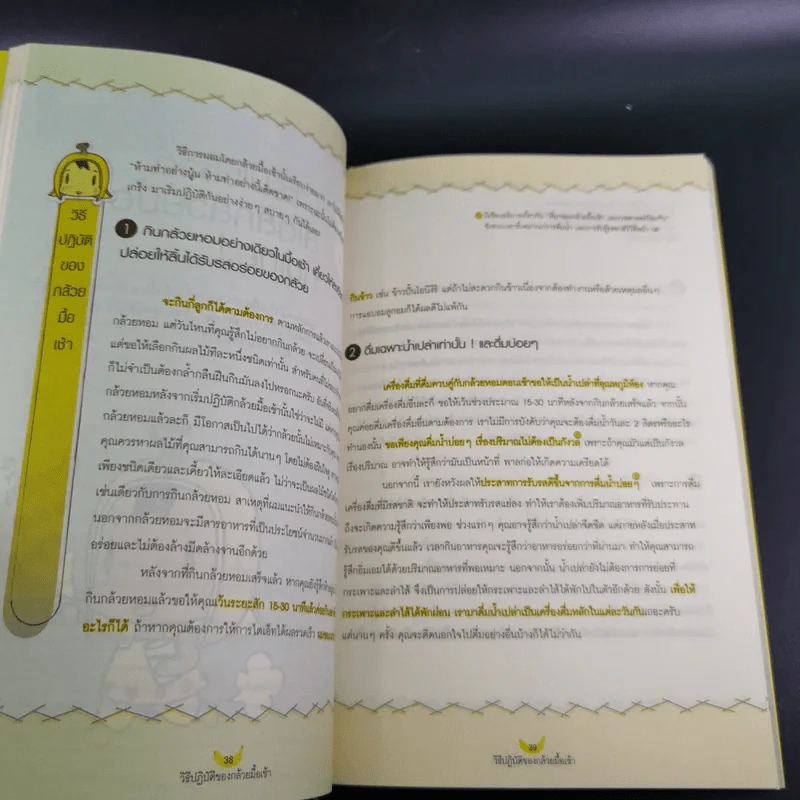 วิธี
ปฏิบัติ
ของ
กล้วย
มื้อ
เช้า
วิธีการผอมโดยกล้วยมื้อเช้านั้นเรียบง่ายมาก
"ห้ามทำอย่างนู้น ห้ามทำอย่างนี้เด็ดขาด!" เพราะฉะนั้นไม่ต้อง
เกร็ง มาเริ่มปฏิบัติกันอย่างง่ายๆ สบายๆ กันได้เลย
1 กินกล้วยหอมอย่างเดียวในมื้อเช้า เคี้ยวให้ละเอียด
ปล่อยให้ลิ้นได้รับรสอร่อยของกล้วย
จะกินกี่ลูกก็ได้ตามต้องการ ตามหลักการแล้ว
กล้วยหอม แต่วันไหนที่คุณรู้สึกไม่อยากกินกล้วย จะเปลี่ยน
แต่ขอให้เลือกกินผลไม้ทีละหนึ่งชนิดเท่านั้น สำหรับคนที่
ก็ไม่จำเป็นต้องกล้ำกลืนฝืนกินมันลงไปหรอกนะครับ
กล้วยหอมหลังจากเริ่มปฏิบัติกล้วยมื้อเช้านั้นใช่ว่าจะไม่มี
กล้วยหอมแล้วละก็ มีโอกาสเป็นไปได้ว่ากล้วยนั้นไม่เหมาะกับ
คุณควรหาผลไม้ที่คุณสามารถกินได้นานๆ โดยไม่ต้องฝืนใจ
เพียงชนิดเดียวและเคี้ยวให้ละเอียดแล้ว ไม่ว่าจะเป็นผลไม้
เช่นเดียวกับการกินกล้วยหอม สาเหตุที่ผมแนะนำให้กินกล้วยหอม
นอกจากกล้วยหอมจะมีสารอาหารที่เป็นประโยชน์จำนวนมากแล้ว
อร่อยและไม่ต้องล้างมีดล้างจานอีกด้วย
หลังจากที่กินกล้วยหอมเสร็จแล้ว หากคุณยังรู้สึก
กินกล้วยหอมแล้วขอให้คุณเว้นระยะสัก 15-30 นาทีแล้วค่อย
อะไรก็ได้ ถ้าหากคุณต้องการให้การไดเอ็ทได้ผลรวดเร็ว
38
วิธีปฏิบัติของกล้วยมื้อเช้า
กินข้าว เช่น ข้าวปั้นโอนิงิริ แต่ถ้าไม่สะดวกกินข้าวเนื่องจากต้องทำงานหรือด้วยเหตุผลอื่นๆ
การแอบอมลูกอมก็ได้ผลดีไม่แพ้กัน
2 ดื่มเฉพาะน้ำเปล่าเท่านั้น ! และดื่มบ่อยๆ
เครื่องดื่มที่ดื่มควบคู่กับกล้วยหอมตอนเช้าขอให้เป็นน้ำเปล่าที่อุณหภูมิห้อง หากคุณ
อยากดื่มเครื่องดื่มอื่นละก็ ขอให้เว้นช่วงประมาณ 15-30 นาทีหลังจากกินกล้วยเสร็จแล้ว จากนั้น
คุณค่อยดื่มเครื่องดื่มอื่นตามต้องการ เราไม่มีการบังคับว่าคุณจะต้องดื่มน้ำวันละ 2 ลิตรหรืออะไร
ทำนองนั้น ขอเพียงคุณดื่มน้ำบ่อยๆ เรื่องปริมาณไม่ต้องเป็นกังวล เพราะถ้าคุณมัวแต่เป็นกังวล
เรื่องปริมาณ อาจทำให้รู้สึกว่ามันเป็นหน้าที่ พาลก่อให้เกิดความเครียดได้
นอกจากนี้ เรายังหวังผลให้ประสาทการรับรสดีขึ้นจากการดื่มน้ำบ่อยๆ เพราะการดื่ม
เครื่องดื่มที่มีรสชาติ จะทำให้ประสาทรับรสแย่ลง ทำให้เราต้องเพิ่มปริมาณอาหารที่รับประทาน
ถึงจะเกิดความรู้สึกว่าเพียงพอ ช่วงแรกๆ คุณอาจรู้สึกว่าน้ำเปล่าจืดชืด แต่ภายหลังเมื่อประสาท
รับรสของคุณดีขึ้นแล้ว เวลากินอาหารคุณจะรู้สึกว่าอาหารอร่อยกว่าที่ผ่านมา ทำให้คุณสามารถ
รู้สึกอิ่มเอมได้ด้วยปริมาณอาหารที่พอเหมาะ นอกจากนั้น น้ำเปล่ายังไม่ต้องการการย่อยที่
กระเพาะและลำไส้ จึงเป็นการปล่อยให้กระเพาะและลำไส้ได้พักไปในตัวอีกด้วย ดังนั้น เพื่อให้
กระเพาะและลำไส้ได้พักผ่อน เรามาดื่มน้ำเปล่าเป็นเครื่องดื่มหลักในแต่ละวันกันเถอะครับ
แต่นานๆ ครั้ง คุณจะคิดนอกใจไปดื่มอย่างอื่นบ้างก็ได้ไม่ว่ากัน
39
วิธีปฏิบัติของกล้วยมื้อเช้า